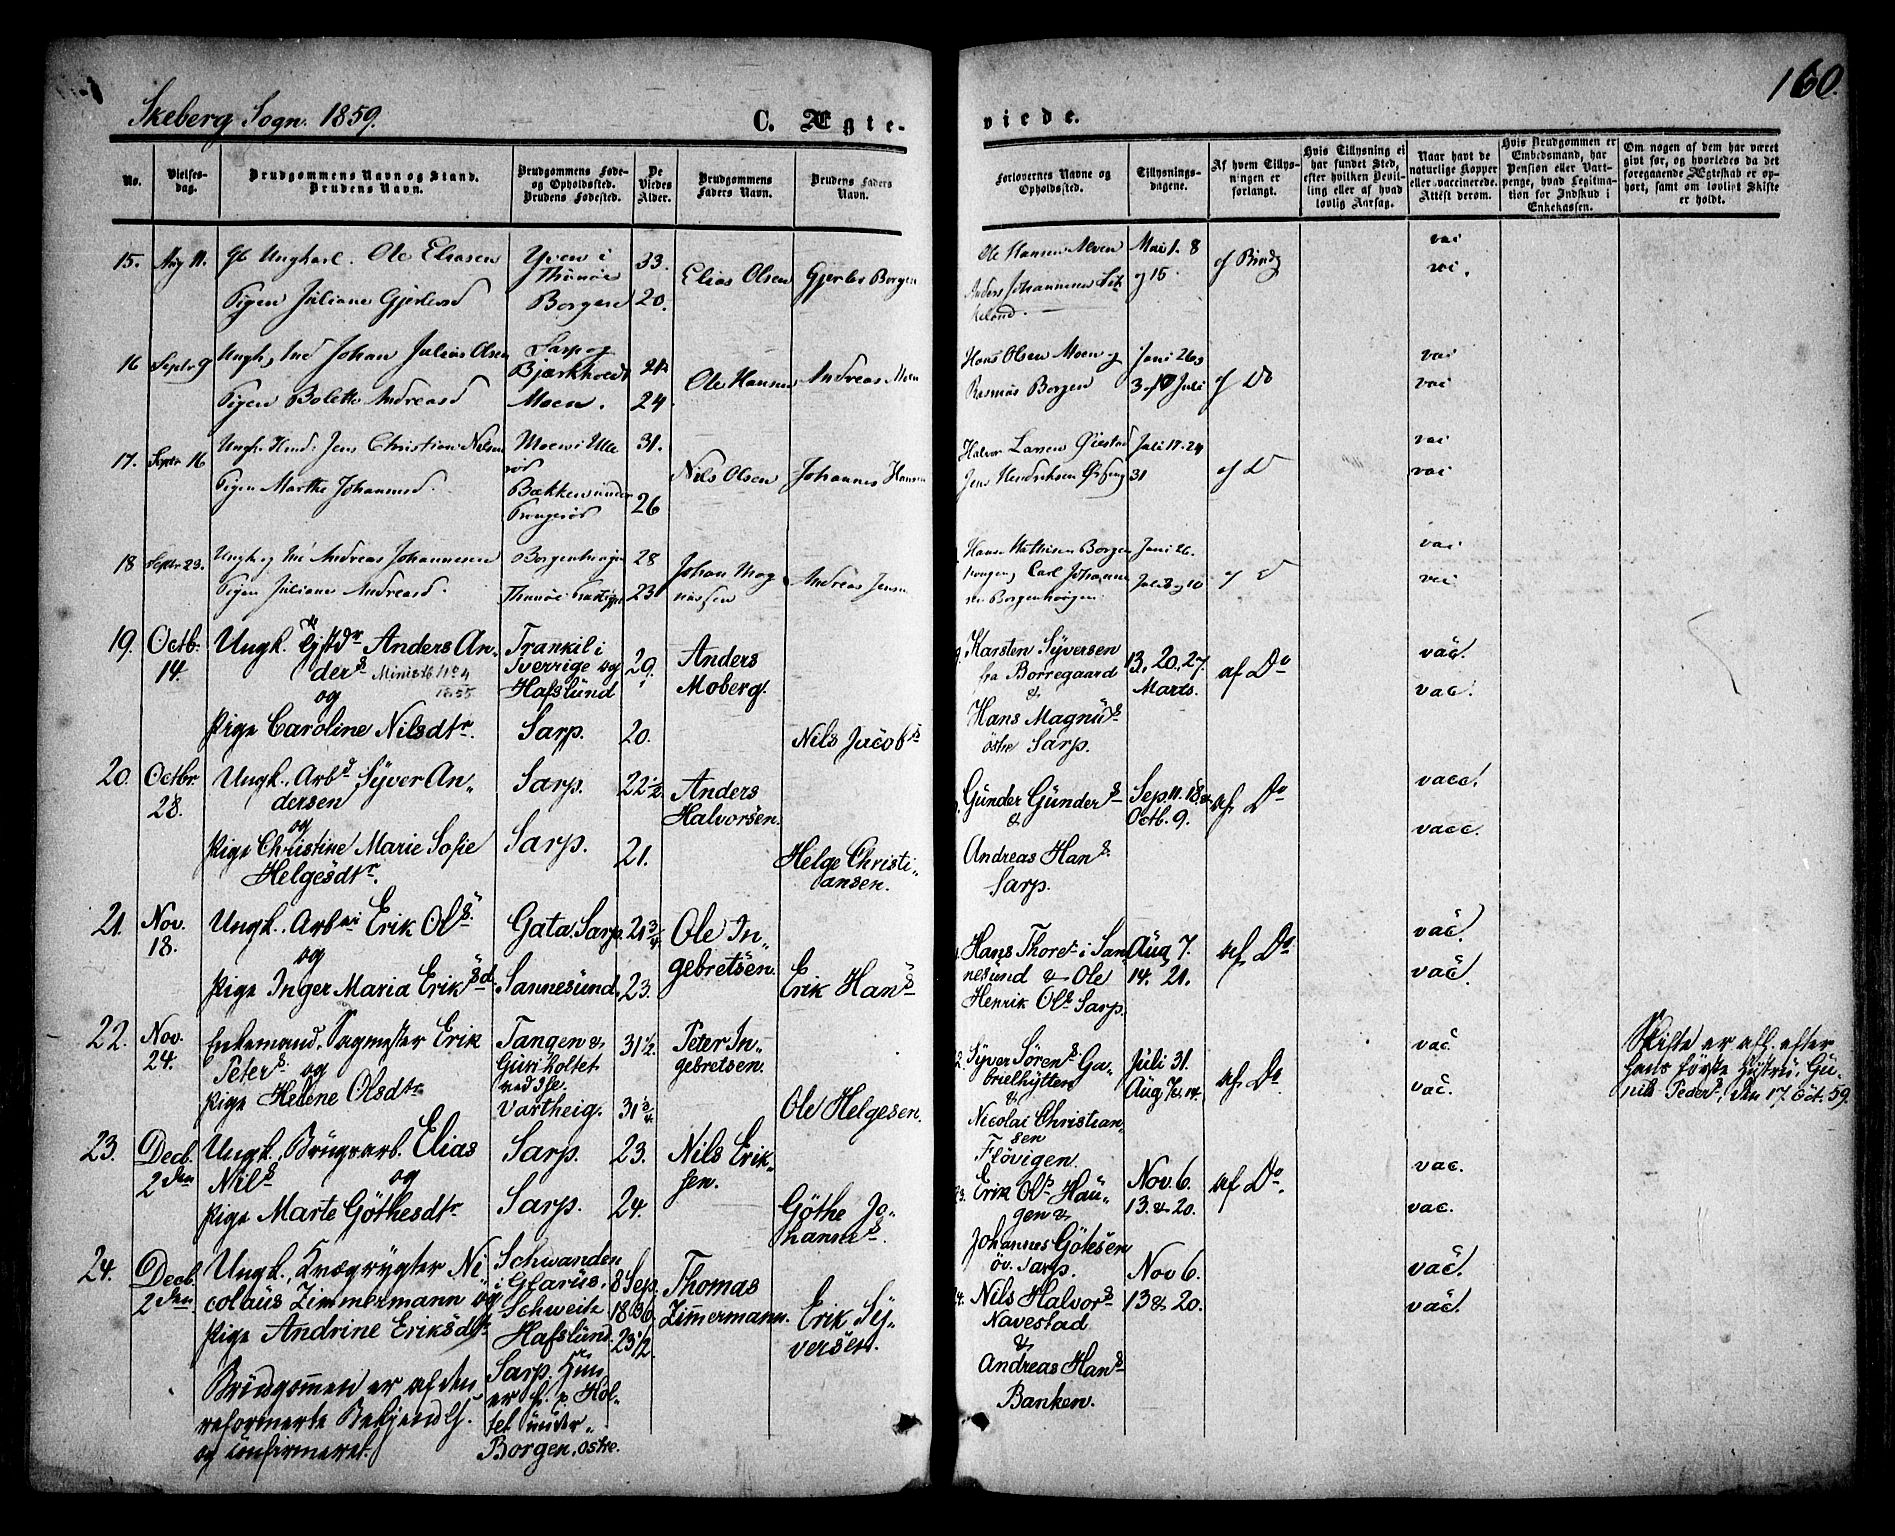 160.
Skeberg Sogn. 1859.
C. Ægte-
viede.
No.
Vielses-
dag.
Brudgommens Navn og Stand.
Brudens Navn.
Brudgommens Føde-
og Opholdssted.
Brudens Fødested.
De
Viedes
Alder.
Brudgommens
Faders Navn.
Brudens Faders
Navn.
Forlovernes Navne og
Opholdssted.
Tillysnings-
dagene.
Af hvem Tillys-
ningen er
forlangt.
Hvis Tillysning ei
har fundet Sted,
efter hvilken Bevil-
ling eller af hvad
lovlig Aarsag.
Naar havt de
naturlige Kopper
eller vaccinerede.
Attest derom.
Hvis Brudgommen er
Embedsmand, har
Pension eller Vart-
penge, hvad Legitima-
tion for Indskud i
Enkekassen.
Om nogen af dem har været
givt før, og hvorledes da det
foregaaende Ægteskab er op-
hørt, samt om lovligt Skifte
er holdt.
15. Aug 11. Ungkarl. Ole Eliasen
Pigen Juliane Gjerlsd
Yven i
Thunøe
Borgen
33.
20.
Elias Olsen
Gjerls Borgen
Ole Hansen Alven
Anders Johannesen
Mai 1. 8
og 15.
vai
vai.
16 Septr 9 Ungk, Ind Johan Julius Olsen
Pigen Bolette Andreasd
Sarp og
Bjærkholdt
Moen.
24
Ole Hansen
Andreas Moen
Hans Olsen Moen og
Rasmus Borgen
Juni 26 og
3 og 17 Juli
af Do
vai
vai
17. Septr 16 Ungk. Jens Christian Nilsen
Pigen Marthe Johannesd.
Moen i Ulle
rød
Bækken under
31.
26
Nils Olsen
Johannes Hansen
Halvor Larsen
Jens Hendriksen
Juli 17. 24
31
af D
vai
vai
18 Septr 23. Ungk og Ind Andreas Johannesen
Pigen Juliane Andreasd.
Borgenhaugen
Thunøe
28
23
Johan Mag
nussen
Andreas Jensen
Hans Mathisen Borgen
haugen, Carl Johanne
sen Borgenhaugen.
Juni 26.
Juli 3 og 10
af D
vai
vai
19. Octb.
14.
Ungk. Anders An„
ders
og
Pige Caroline Nilsdtr.
Trankil i
Sverrige og
Hafslund
Sarp.
29.
20.
Anders
Moberg.
Nils Jacobs
Karsten Syversen
fra Borregaard
&
Hans Magnus
östre Sarp.
13, 20, 27.
Marts.
af Do
vac.
vac.
20. Octbr.
28.
Ungk. Arbd Syver An„
dersen
og
Pige Christine Marie Sofie
Helgesdtr.
Sarp.
Sarp.
22 1/2
21.
Anders
Halvorsen.
Helge Christi„
ansen.
Gunder Gunders
&
Andreas Hans
Sarp.
Sep. 11. 18 &
Octb. 9.
af Do
vacc.
vacc.
21. Nov.
18.
Ungk. Arb Erik Ols
og
Pige Inger Maria Eriksd
Gata. Sarp.
Sannesund.
21 3/4
23.
Ole In„
gebretsen.
Erik Hans
Hans Thores i San„
nesund & Ole
Henrik Ols Sarp.
Aug 7.
14. 21.
af Do
vac.
vac.
22. Nov.
24.
Enkemand, Sagmester Erik
Peters og
Pige Helene Olsdtr
Tangen &
Guriholtet
ved Ise.
Vartheig.
31 1/2
31 3/4
Peter In„
gebretsen.
Ole Helgesen.
Syver Sörens Ga„
brielhytten
&
Nicolai Christian„
sen
Flövigen.
Juli 31.
Aug. 7 & 14.
af Do
vac.
vac.
Skifte er afh. efter
hans første Hustru, Gu„
nild Peders, den 17 Oct. 59.
23. Decb.
2den
Ungk., Brugsarb. Elias
Nils og
Pige Marte Göthesdtr
Sarp.
Sarp.
23.
24.
Nils Erik-
sen.
Göthe Jo„
hannes.
Erik Ols Hau„
gen &
Johannes Götesen
öv. Sarp.
Nov. 6.
13. & 20.
af Do.
vac.
vac.
24. Decb.
2den
Ungk., Kvægrygter Ni„
colaus Zimmermann og
Pige Andrine Eriksdtr
Brudgommen er af den
reformerte Bekjendels.
og confirmeret.
Schwanden
i Glarus,
Schweitz
Hafslund.
Sarp. Hun
er f. p. Hol-
tet under
Borgen, östre.
8 Sep.
1830
23 1/2.
Thomas
Zimmermann.
Erik Sy„
versen.
Nils Halvors
Navestad
&
Andreas Hans
Banken.
Nov 6.
13 & 20.
vac.
vac.